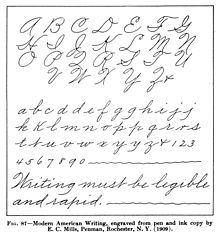 A B C D E F G
H I J K L M N
O P Q R S T U
V W X Y Z &
a b c d e f g g h i j i j
k k l m n o p p q r s r s
t t u v w x y y z & 1 2 3
4 5 6 7 8 9 0
Writing must be legible
and rapid.
FIG. 87—Modern American Writing, engraved from pen and ink copy by
E. C. Mills, Penman, Rochester, N. Y. (1909).